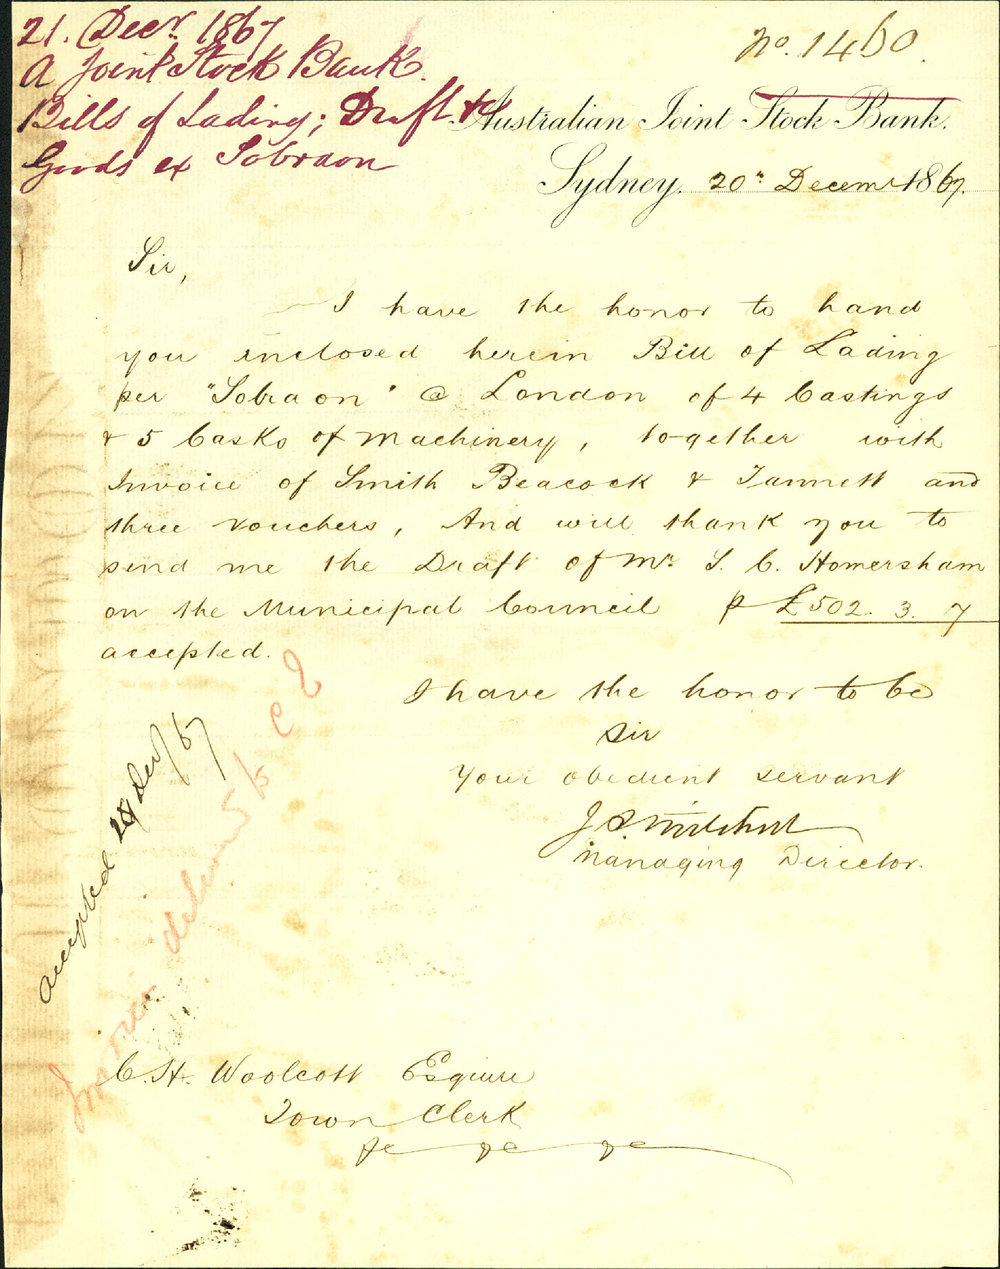 21. Decr. 1867
A Joint Stock Bank.
Bills of Lading; Draft &c
Goods ex Sobraon
No. 1460.
Australian Joint Stock Bank.
Sydney. 20th Decemr 1867.
Sir,
I have the honor to hand
you enclosed herein Bill of Lading
per "Sobraon" @ London of 4 Castings
& 5 Casks of Machinery, together with
Invoice of Smith Beacock & Tannett and
three vouchers, And will thank you to
send me the Draft of Mr. S. C. Homersham
on the Municipal Council p £502. 3. 7
accepted.
I have the honor to be
Sir
Your obedient servant
Managing Director.
accepted 24 Decr/67
Invoice delivered to C E
C. H. Woolcott Esquire
Town Clerk
&c &c &c